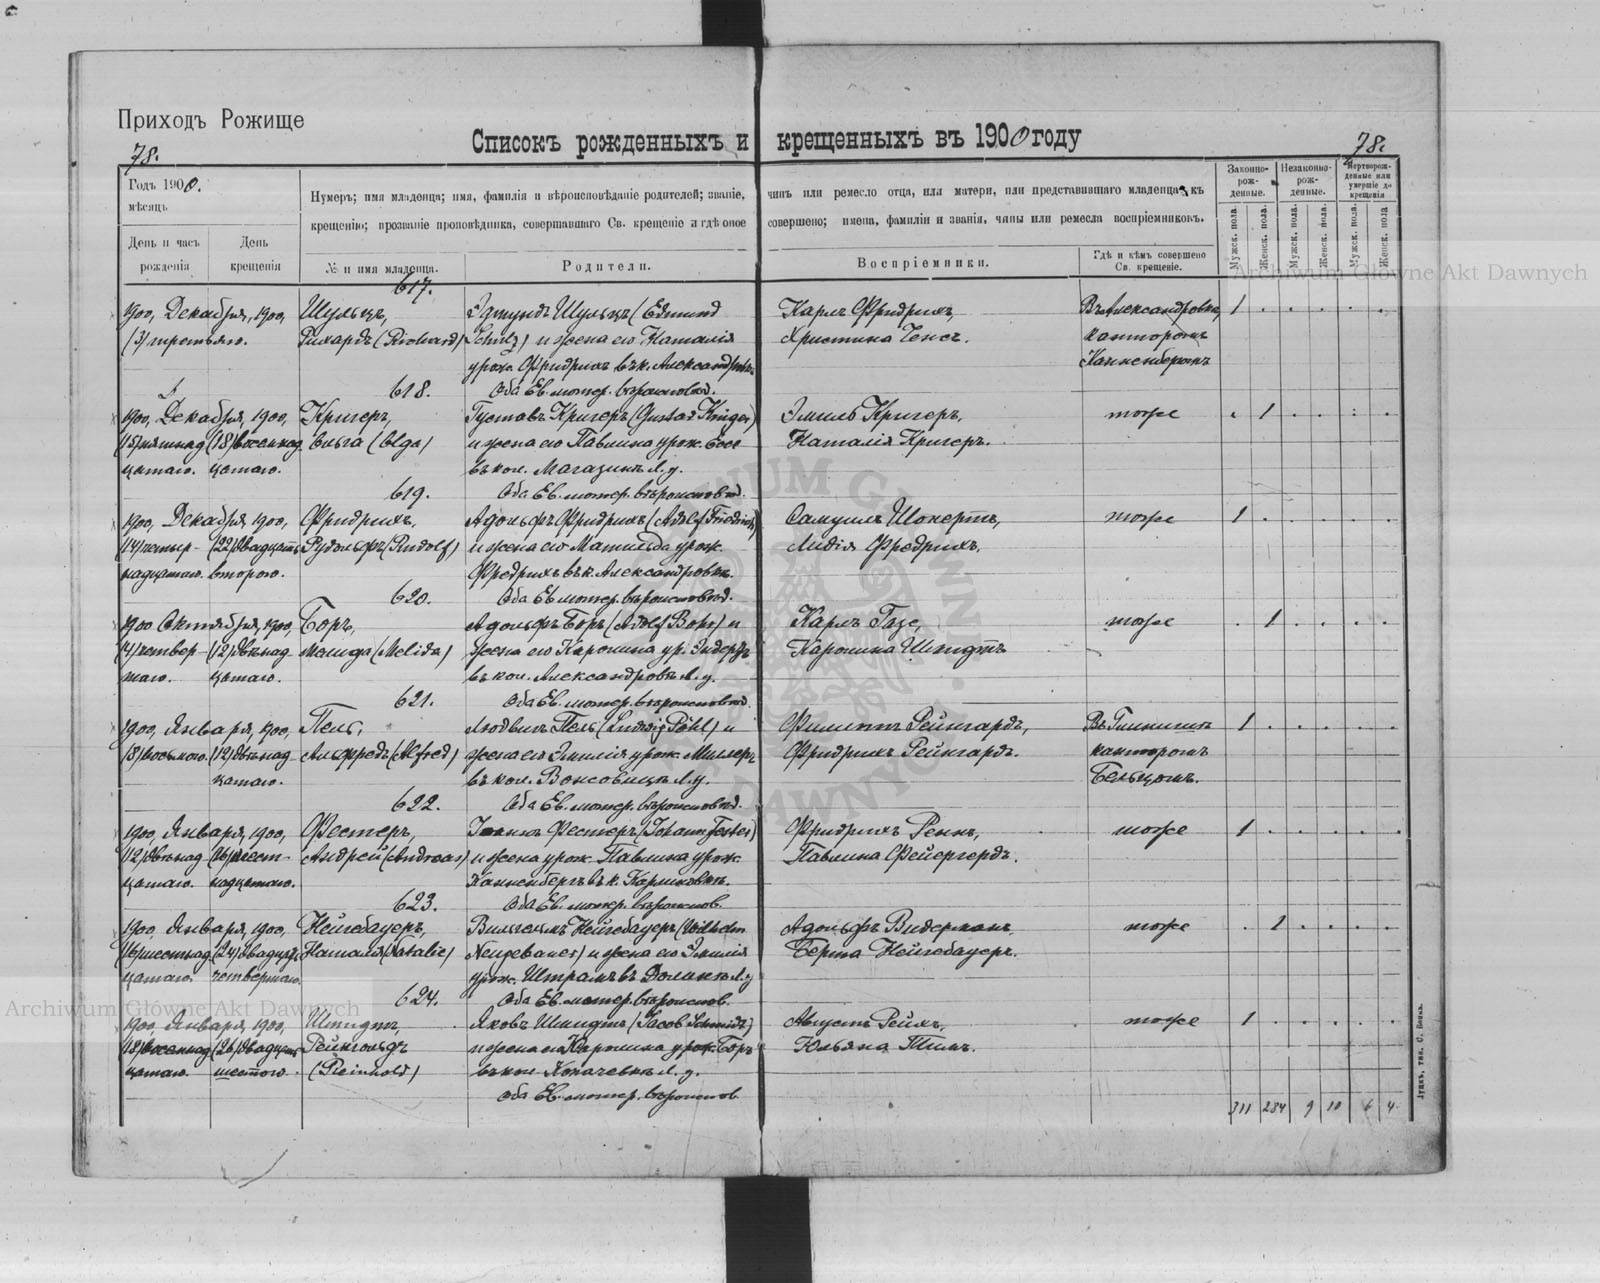 Приходъ Рожище
Списокъ рожденныхъ и крещенныхъ въ 1900 году
78.
78.
Годъ 1900.
мѣсяцъ
День и часъ рожденія
День крещенія
Нумеръ; имя младенца; имя, фамилія и вѣроисповѣданіе родителей; званіе, чинъ или ремесло отца, или матери, или представившаго младенца къ
крещенію; прозваніе проповѣдника, совершавшаго Св. крещеніе и гдѣ оное совершено; имена, фамиліи и званія, чины или ремесла воспріемниковъ.
№ и имя младенца.
Родители.
Воспріемники.
Гдѣ и кѣмъ совершено Св. крещеніе.
Законно-рож-денные.
Незаконно-рож-денные.
Мертворож-денные или умершіе до крещенія
Мужск. пола.
Женск. пола.
Мужск. пола.
Женск. пола.
Мужск. пола.
Женск. пола
617.
1900, Декабря, 1900, Шульцъ, Эдмундъ Шульцъ (Edmund Карлъ Фридрихъ, Въ Александровкѣ, 1
(3) третьяго. Рихардъ (Richard) Schulz) и жена его Наталія Христина Генсъ. канторомъ
урож. Фридрихъ въ к. Александровкѣ Канненбергомъ
618. Оба Ев. лютер. вѣроисповѣд.
1900, Декабря, 1900, Кригеръ, Густавъ Кригеръ (Gustav Krüger) Эмиль Кригеръ, тоже 1
(15) пятнад (18) восемнад Ольга (Olga) и жена его Павлина урож. Наталія Кригеръ.
цатаго. цатаго. въ кол. Магазинъ Л. у.
619. Оба Ев. лютер. вѣроисповѣд.
1900, Декабря, 1900, Фридрихъ, Адольфъ Фридрихъ (Adolf Friedrich) Самуилъ Шонертъ, тоже 1
(14) четыр- (22) двадцать Рудольфъ (Rudolf) и жена его Матильда урож. Лидія Фредрихъ.
надцатаго. второго. Фредрихъ въ к. Александровкѣ.
620. Оба Ев. лютер. вѣроисповѣд.
1900 Октября, 1900, Боръ, Адольфъ Боръ (Adolf Bohr) и Карлъ Газе, тоже 1
(4) четвер- (12) двѣнад- Мелида (Melida) жена его Каролина ур. Каролина Шмидтъ
таго. цатаго. въ кол. Александровкѣ Л. у.
621. Оба Ев. лютер. вѣроисповѣд.
1900, Января, 1900, Пель, Людвигъ Пель (Ludwig Pöhl) и Филиппъ Рейнгардъ, 1
(8) восьмого. (12) двѣнад- Альфредъ (Alfred) жена его Эмилія урож. Миллеръ Фридрихъ Рейнгардъ. канторомъ
цатаго. въ кол. Л. у.
622. Оба Ев. лютер. вѣроисповѣд.
1900, Января, 1900, Фестеръ, Фестеръ (Johann Fester) Фридрихъ Реннъ, тоже 1
(12) двѣнад (16) шест- Андрей (Andreas) и жена урож. Павлина урож. Павлина Фейергердъ.
цатаго. надцатаго. Канненбергъ въ к. Карлиновкѣ.
623. Оба Ев. лютер. вѣроиспов.
1900, Января, 1900, Нейгебауеръ, Вильгельмъ Нейгебауеръ (Wilhelm Адольфъ Видерманъ, тоже 1
(16) шестнад (24) двадцать Наталія (Natalie) Neugebauer) и жена его Эмилія Берта Нейгебауеръ.
цатаго. четвертаго. урож. Штрамъ въ Л. у
624. Оба Ев. лютер. вѣроиспов.
1900, Января, 1900, Шмидтъ, Яковъ Шмидтъ (Jacob Schmidt) Августъ Рейхъ, тоже 1
(18) восемнад (26) двадцать Рейнгольдъ и жена его Каролина урож. Боръ Юльяна Тимъ.
цатаго. шестого. (Reinhold) въ кол. Копачевкѣ Л. у.
Оба Ев. лютер. вѣроиспов.
311 284 9 10 6 4
Луцкъ, тип. С. Бонкъ.
Archiwum Główne Akt Dawnych
Archiwum Główne Akt Dawnych